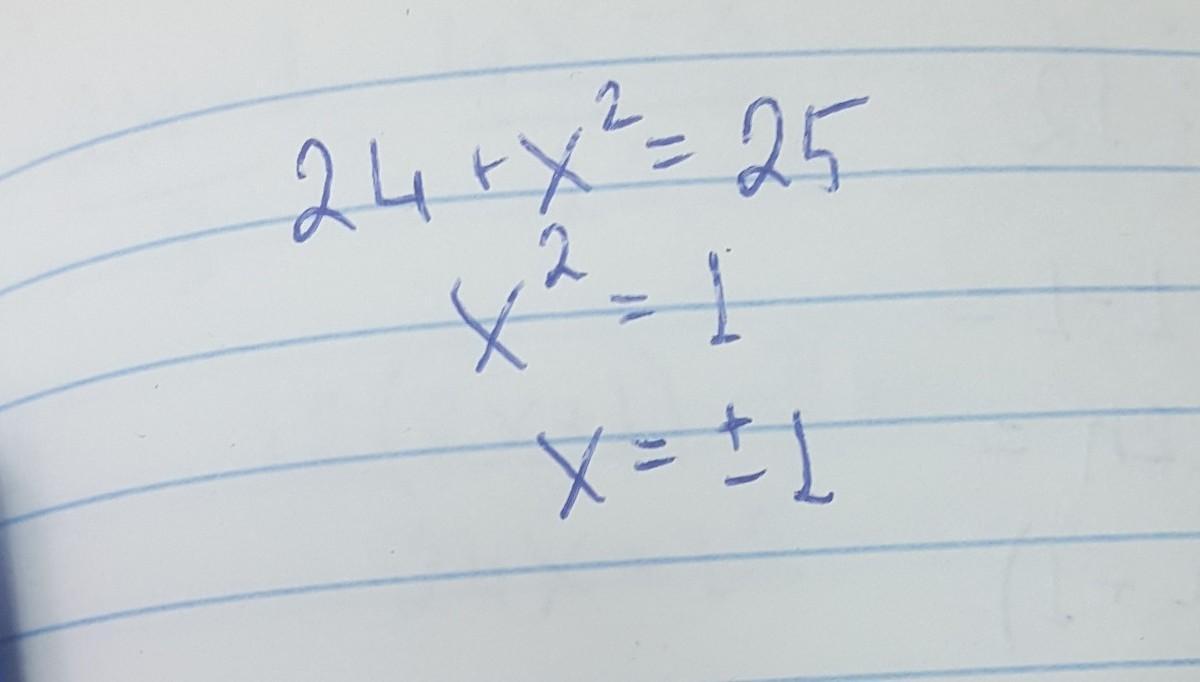 24 + x² = 25
x² = 1
x = ± 1